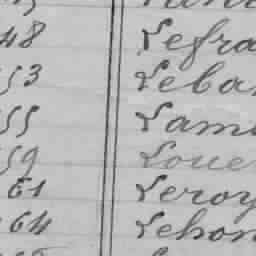 48 Lefra
53 Leba
55 Lam
59 Loue
61 Leroy
64 Lehon